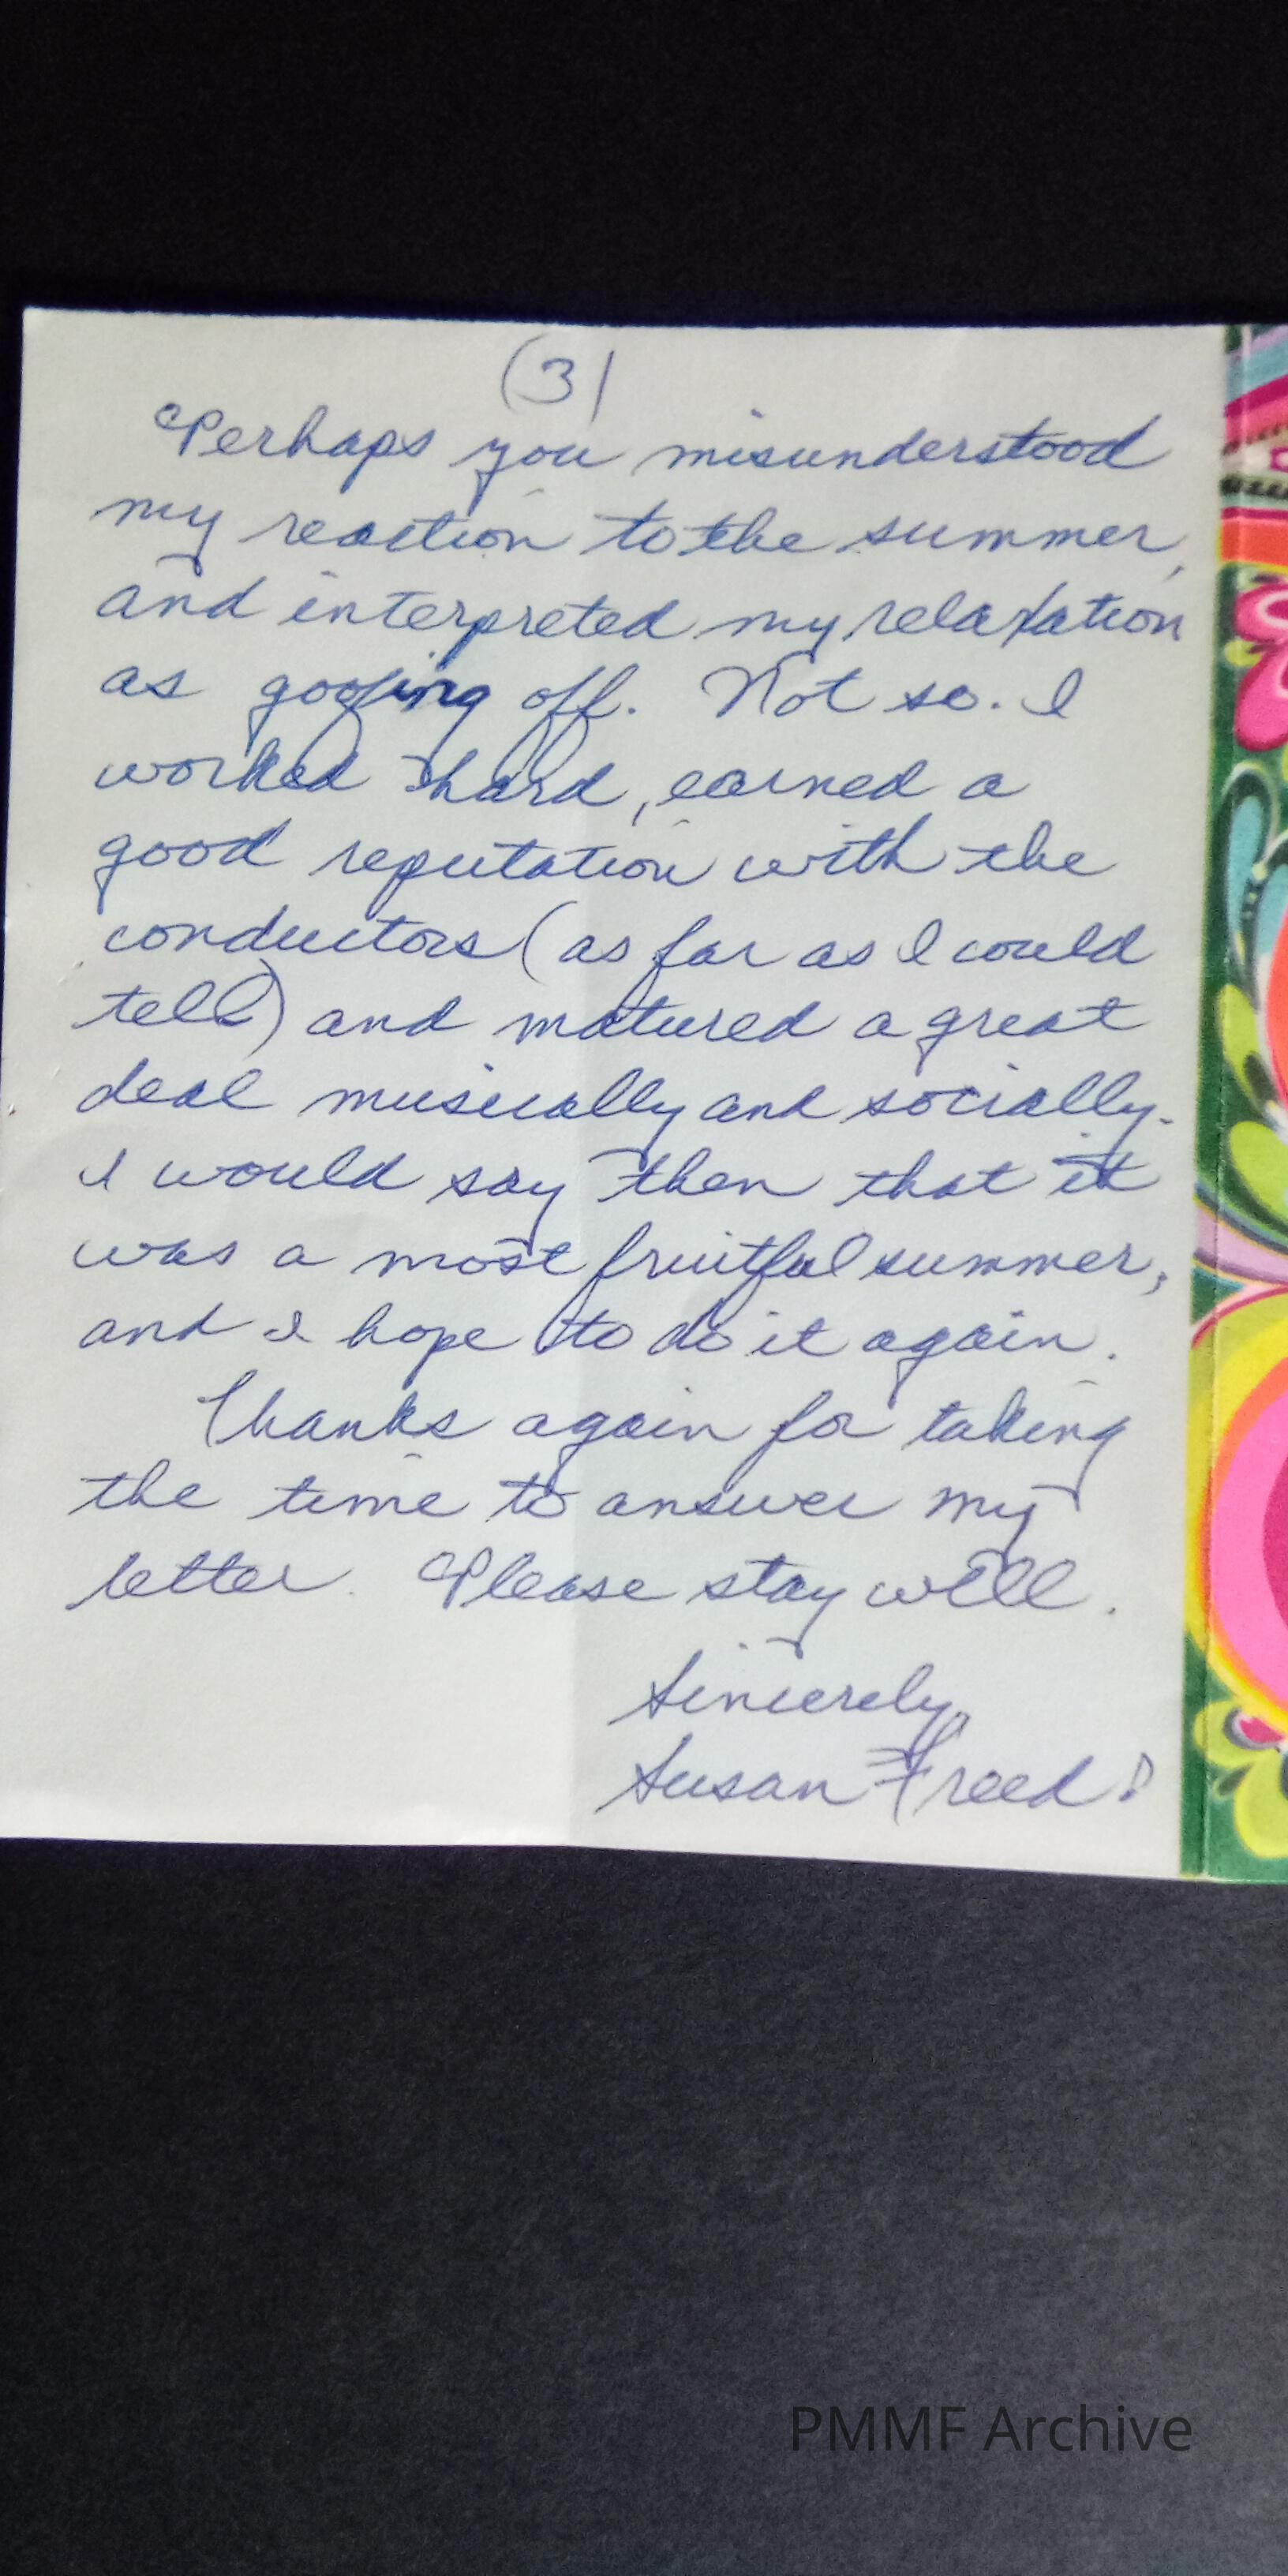 (3)
Perhaps you misunderstood
my reaction to the summer,
and interpreted my relaxation
as goofing off. Not so. I
worked hard, earned a
good reputation with the
conductors (as far as I could
tell) and matured a great
deal musically and socially.
I would say then that it
was a most fruitful summer,
and I hope to do it again.
Thanks again for taking
the time to answer my
letter. Please stay well.
Sincerely,
Susan Freed
PMMF Archive